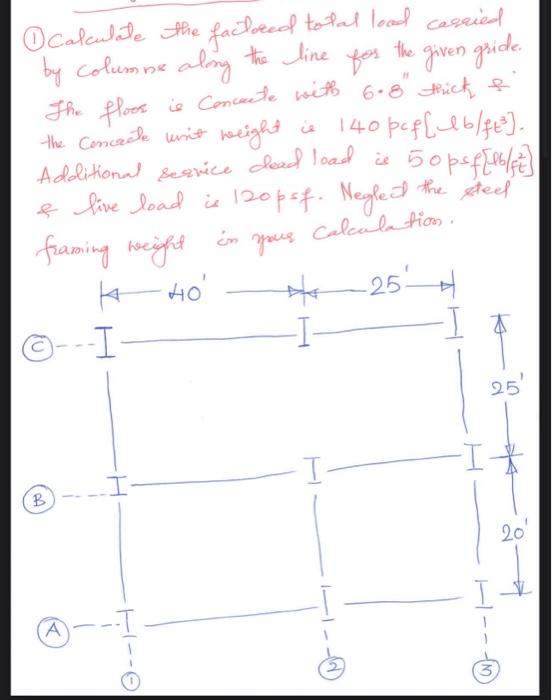 ① Calculate the factored total load carried
by columns along the line for the given gride.
The floor is Concrete with 6.8" thick &
the Concrete unit weight is 140 pcf [lb/ft³].
Additional service dead load is 50 psf [lb/ft²]
& live load is 120 psf. Neglect the steel
framing weight in your Calculation.
40' 25'
C
25'
B
20'
A
1 2 3